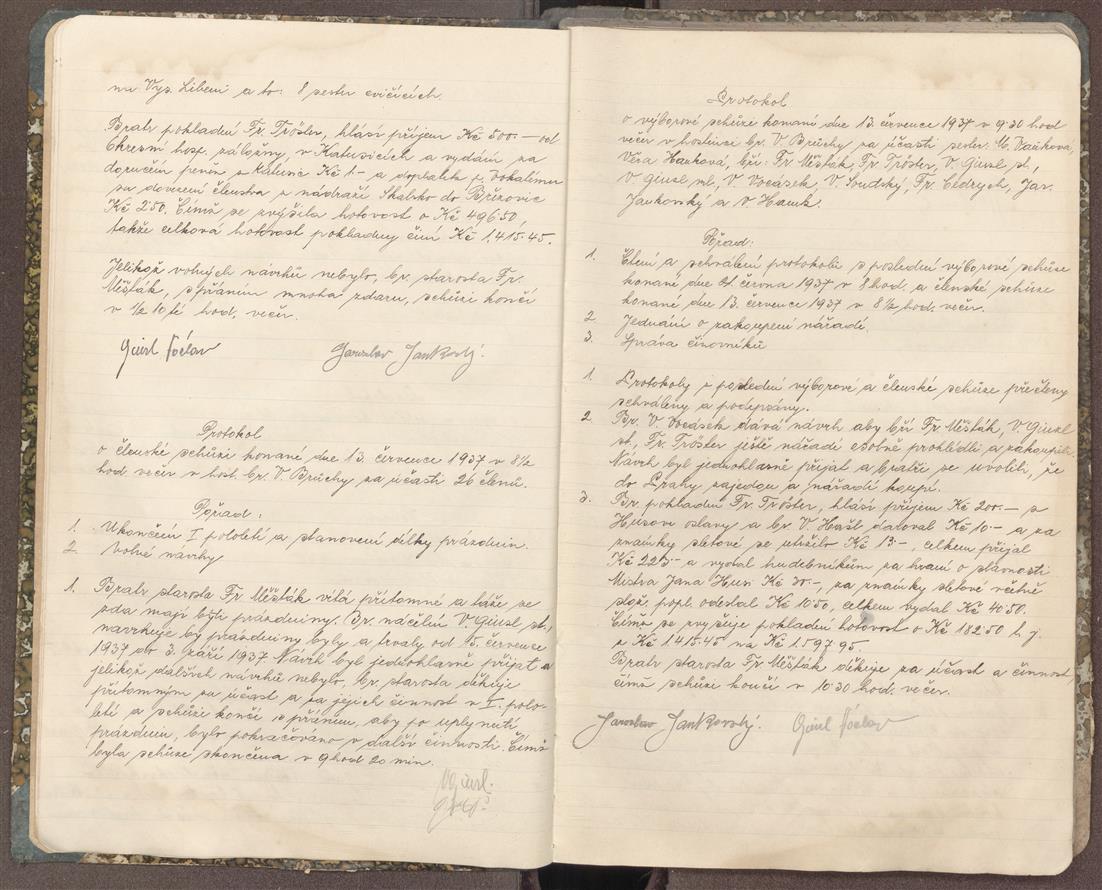 na Vys. Libeni a to: 8 sester cvičících.
Bratr pokladní Fr. Tröster, hlásí příjem Kč 500·– od
Okresní hosp. záložny, v Katusicích a vydání za
doručení peněz z Katusic Kč 1·– a doplatek p. Vokálímu
za dovezení členstva z nádraží Skalsko do Březovic
Kč 2·50. Čímž se zvýšila hotovost o Kč 496·50,
takže celková hotovost pokladny činí Kč 1.415·45.
Jelikož volných návrhů nebylo, br. starosta Fr.
Měšták, s přáním mnoha zdaru, schůzi končí
v ½ 10 té hod. večer.
Giusl Václav Jaroslav Jankovský.
Protokol
o členské schůzi konané dne 13. července 1937 v 8½
hod večer v host. br. V. Brůchy za účasti 26 členů.
Pořad:
1. Ukončení I pololetí a stanovení délky prázdnin.
2. Volné návrhy
1. Bratr starosta Fr Měšták vítá přítomné a táže se
zda mají býti prázdniny. Br. náčelní V Giusl st.,
navrhuje by prázdniny byly a trvaly od 15. července
1937 do 3. září 1937. Návrh byl jednohlasně přijat a
jelikož dalších návrhů nebylo, br starosta děkuje
přítomným za účast a za jejich činnost v I. polo-
letí a schůzi končí s přáním, aby po uplynutí
prázdnin, bylo pokračováno v další činnosti. Čímž
byla schůze skončena v 9 hod 20 min.
VGiusl.
Protokol
o výborové schůzi konané dne 13. července 1937 v 9·30 hod
večer v hostinci br. V. Brůchy za účasti sester: M. Vaňková,
Věra Hanková, bří: Fr Měšták, Fr. Tröster, V Giusl st.,
V Giusl ml., V. Vocásek, V. Soudský, Fr. Cedrych, Jar.
Jankovský a V. Hamk.
Pořad:
1. Čtení a schválení protokolů s poslední výborové schůze
konané dne 21. června 1937 v 8 hod. a členské schůze
konané dne 13. července 1937 v 8½ hod. večer.
2. Jednání o zakoupení nářadí.
3. Správa činovníků
1. Protokoly s poslední výborové a členské schůze přečteny
schváleny a podepsány.
2. Br. V. Vocásek dává návrh aby bří Fr Měšták, V. Giusl
st., Fr. Tröster ještě nářadí osobně prohlédli a zakoupili.
Návrh byl jednohlasně přijat a bratří se uvolili, že
do Prahy zajedou a nářadí koupí.
3. Br. pokladní Fr. Tröster, hlásí příjem Kč 200·– z
Husovi oslavy a br. V. Hašl daloval Kč 10·– a za
známky sletové se utržilo Kč 13·–, celkem přijal
Kč 223·– a vydal hudebníkům za hraní o slavnosti
Mistra Jana Husi Kč 30·–, za známky sletové včetně
slož. popl. odeslal Kč 10·50, celkem vydal Kč 40·50.
Čímž se zvyšuje pokladní hotovost o Kč 182·50 t. j.
z Kč 1.415·45 na Kč 1.597·95.
Bratr starosta Fr Měšták děkuje za účast a činnost,
čímž schůzi končí v 10·30 hod. večer.
Jaroslav Jankovský. Giusl Václav